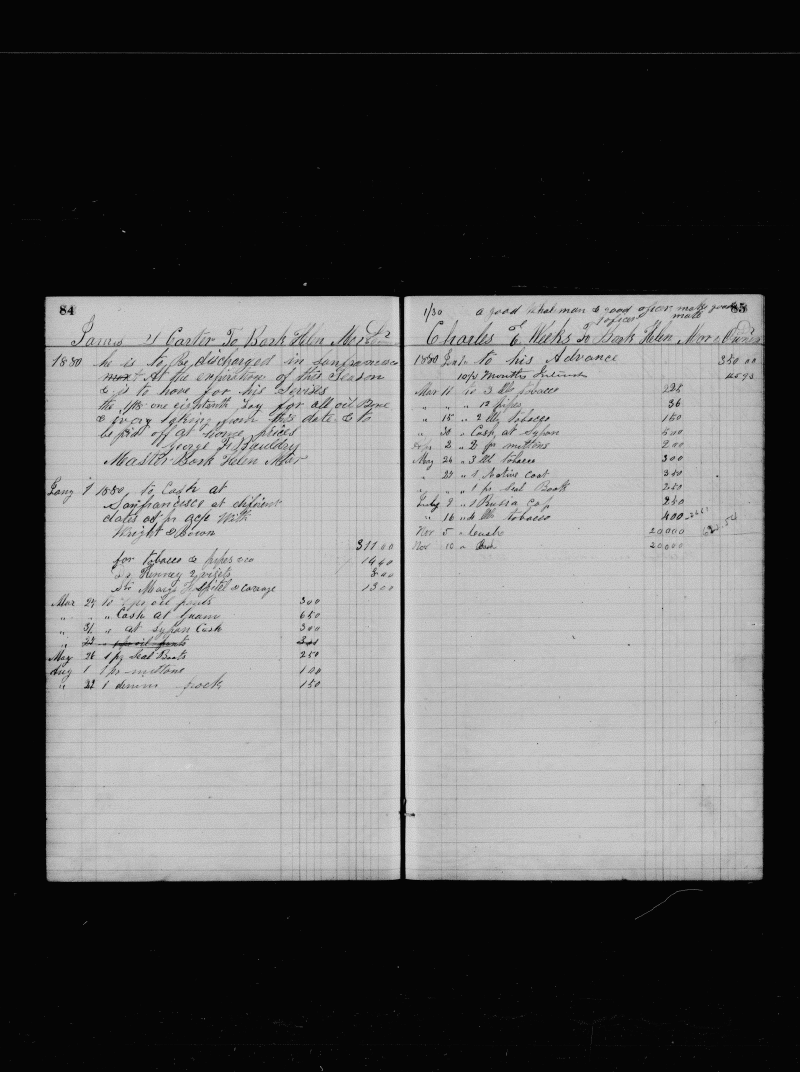 84
James H Carter To Bark Helen Mar Dr
1880 he is to be discharged in sanfrancisco
At the expiration of this Season
& is to have for his Sevises
the 1/18 one eighteenth Lay for all oil Bone
& ivory taking from this date & to
be paid off at home prices
George F Bauldry
Master Bark Helen Mar
Jany 1 1880 to Cash at
Sanfrancisco at difirent
dates as pr acct With
Wright & Bown
317 00
for tobacco & pipes 14 40
Kenney 2 visits 5 00
Marys Hospitel & carage 13 00
Mar 24 to oil pants 300
" " " Cash at Guam 650
" 31 " at Sypan Cash 300
" 22 " 1 pr oil pants
May 26 1 pr Seal Boots 250
Aug 1 1 pr mittens 100
" 22 1 denim frock 150
1/30 a good Whalman & good oficer
85
Charles E Weeks To Bark Helen Mar & Owners Dr
1880 Jan to his Advance 350 00
10/3 Months Interest 45 93
Mar 11 To 3 lb tobacco 225
" " " 12 pipes 36
" 15 " 2 lb tobacco 150
" 30 " Cash at Sypan 500
2 " 2 pr mittens 200
May 24 " 3 lb tobacco 300
" 27 " 1 Native Coat 350
" " " 1 pr Seal Boots 250
July 9 " 1 Rusia Cap 250
" 16 " 4 lb tobacco 400
Nov 5 " 20000
Nov 10 " Cash 20000